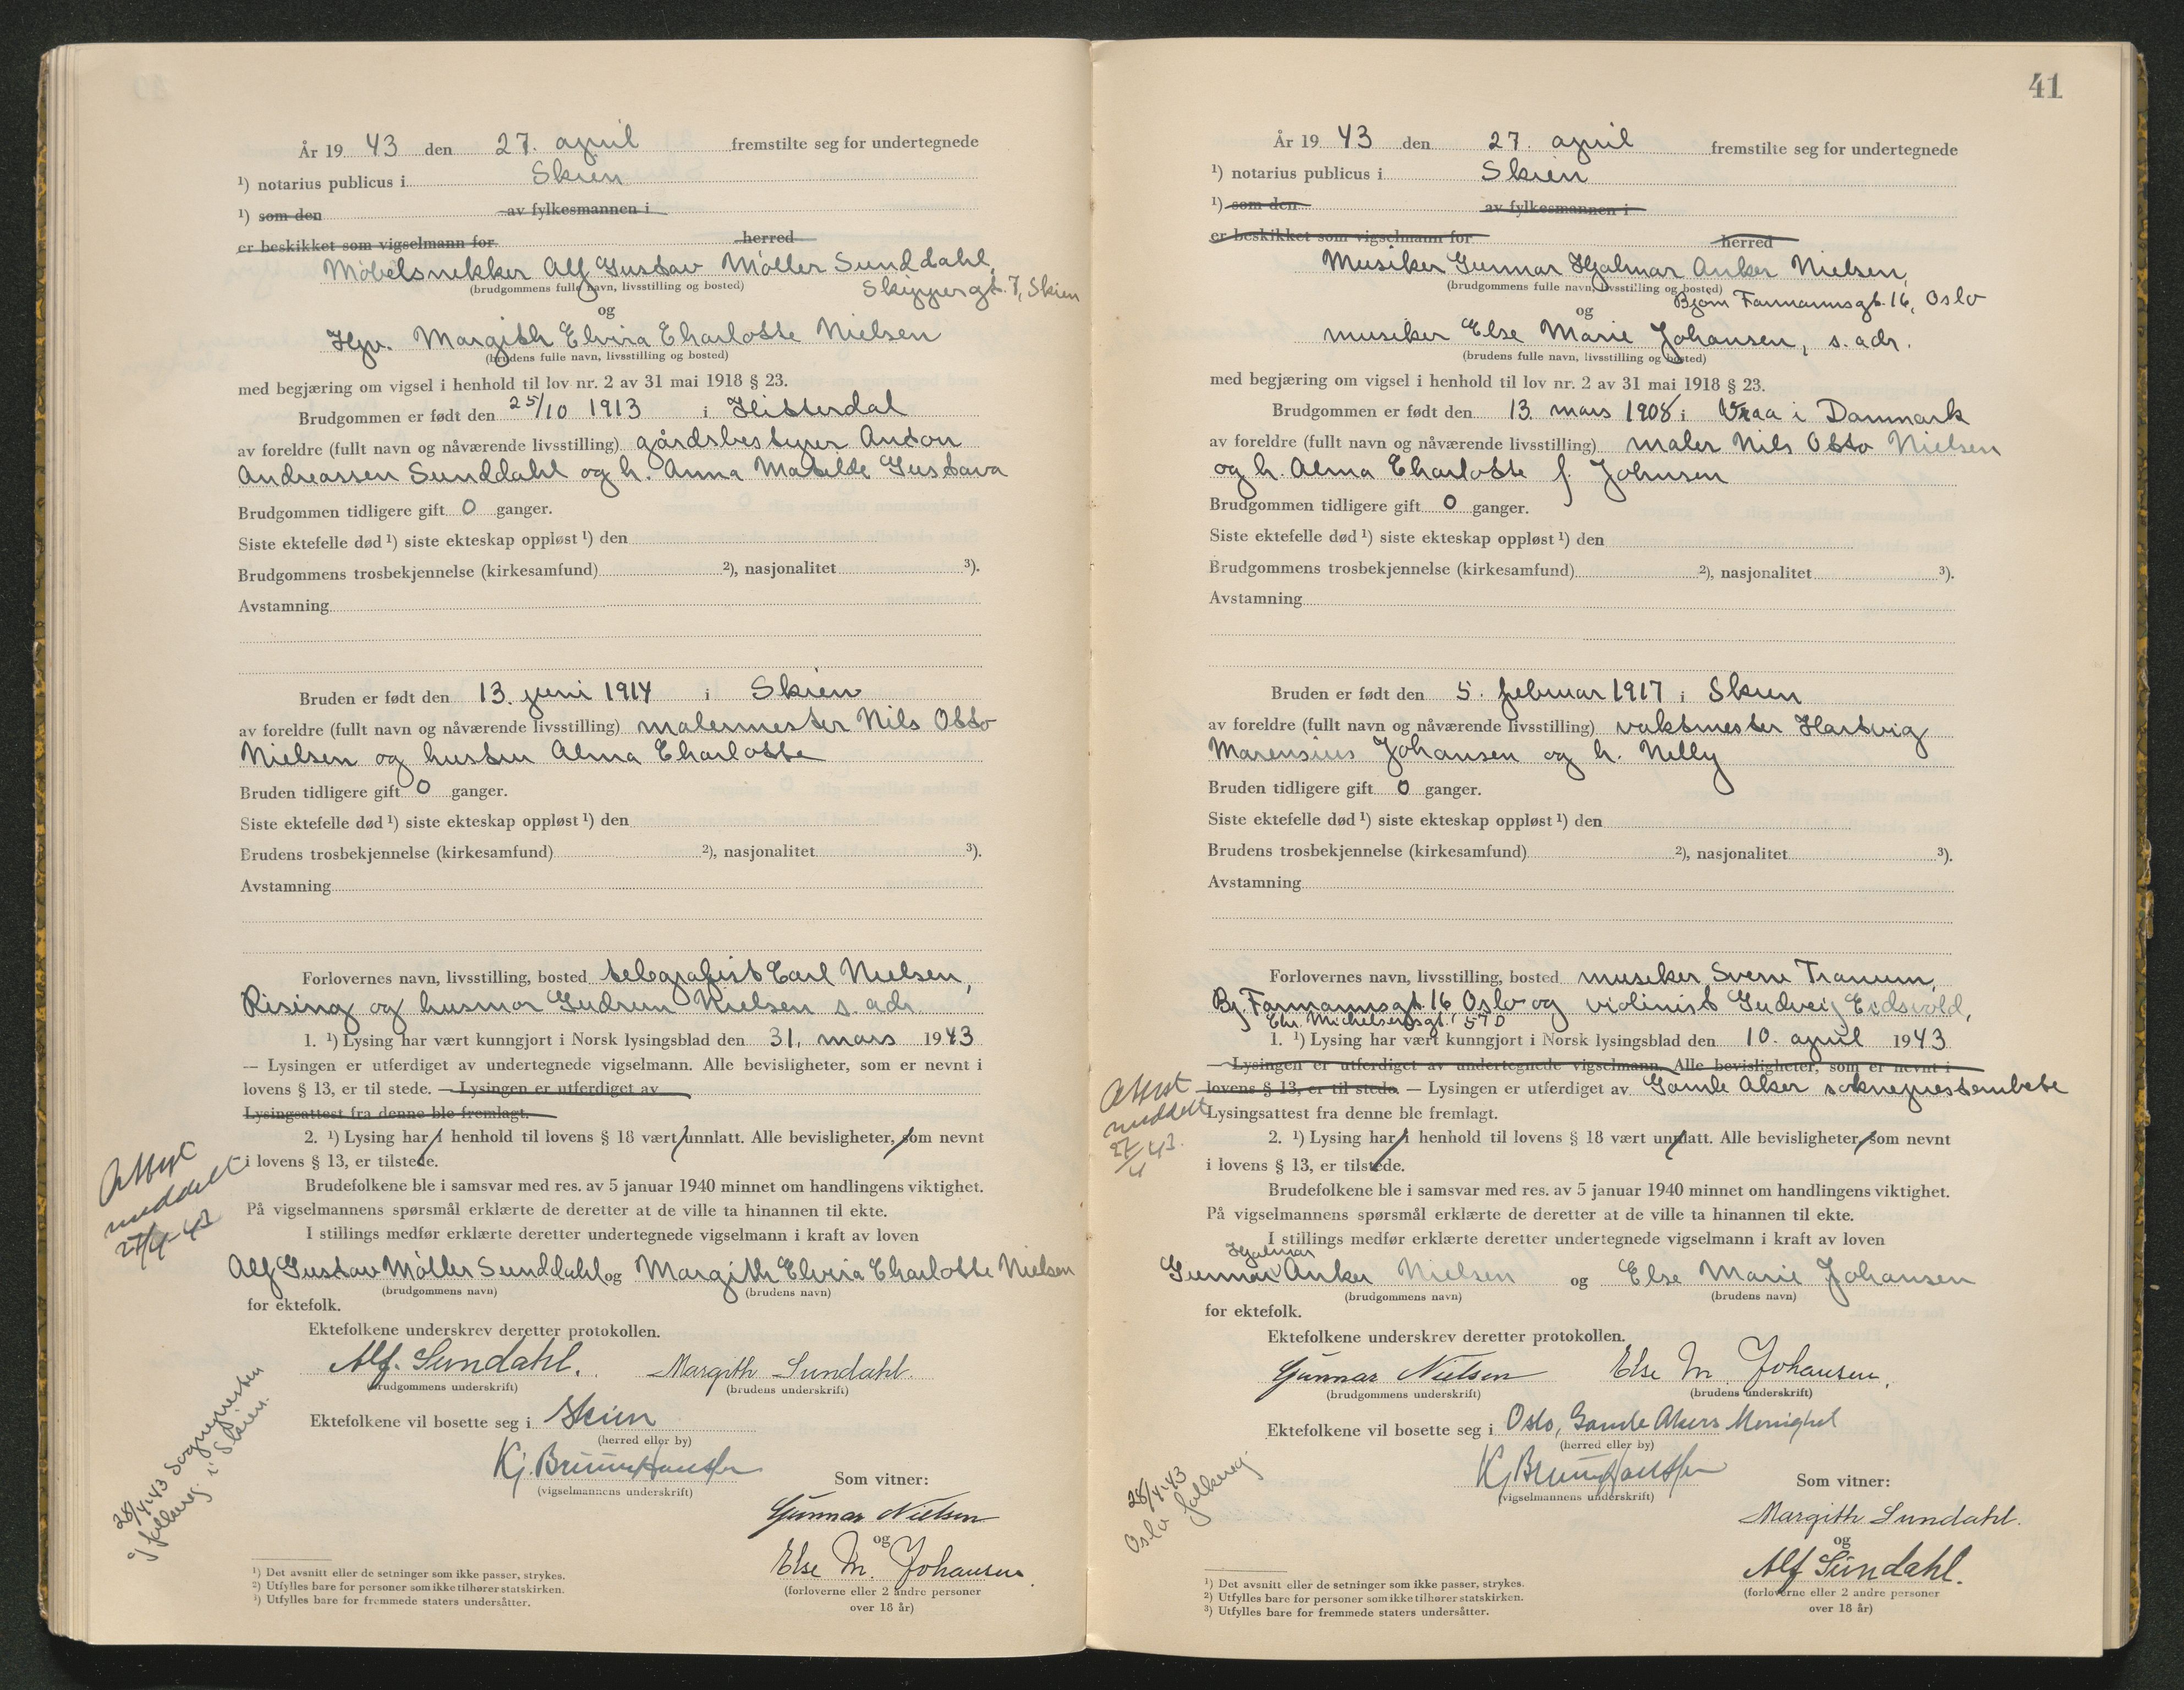 År 19 43 den 27. april fremstilte seg for undertegnede
¹) notarius publicus i Skien
¹) som den av fylkesmannen i
er beskikket som vigselmann for herred
Møbelsnekker Alf Gustav Møller Sunddahl,
(brudgommens fulle navn, livsstilling og bosted)
Skippergt. 7, Skien
og
Hpr. Margith Elvira Charlotte Nielsen
(brudens fulle navn, livsstilling og bosted)
med begjæring om vigsel i henhold til lov nr. 2 av 31 mai 1918 § 23.
Brudgommen er født den 25/10 1913 i Hitterdal
av foreldre (fullt navn og nåværende livsstilling) gårdsbestyrer Anton
Andreassen Sunddahl og h. Anna Matilde Gustava
Brudgommen tidligere gift 0 ganger.
Siste ektefelle død ¹) siste ekteskap oppløst ¹) den
Brudgommens trosbekjennelse (kirkesamfund) ²), nasjonalitet ³).
Avstamning
Bruden er født den 13. juni 1914 i Skien
av foreldre (fullt navn og nåværende livsstilling) malermester Nils Otto
Nielsen og hustru Alma Charlotte
Bruden tidligere gift 0 ganger.
Siste ektefelle død ¹) siste ekteskap oppløst ¹) den
Brudens trosbekjennelse (kirkesamfund) ²), nasjonalitet ³).
Avstamning
Forlovernes navn, livsstilling, bosted telegrafist Carl Nielsen,
Rising og husmor Gudrun Nielsen s. adr.
1. ¹) Lysing har vært kunngjort i Norsk lysingsblad den 31. mars 1943
— Lysingen er utferdiget av undertegnede vigselmann. Alle bevisligheter, som er nevnt i
lovens § 13, er til stede. — Lysingen er utferdiget av
Lysingsattest fra denne ble fremlagt.
2. ¹) Lysing har i henhold til lovens § 18 vært unnlatt. Alle bevisligheter, som nevnt
i lovens § 13, er tilstede.
Attest
meddelt
27/4-43
Brudefolkene ble i samsvar med res. av 5 januar 1940 minnet om handlingens viktighet.
På vigselmannens spørsmål erklærte de deretter at de ville ta hinannen til ekte.
I stillings medfør erklærte deretter undertegnede vigselmann i kraft av loven
Alf Gustav Møller Sunddahl og Margith Elvira Charlotte Nielsen
(brudgommens navn) (brudens navn)
for ektefolk.
Ektefolkene underskrev deretter protokollen.
Alf. Sundahl. Margith Sundahl.
(brudgommens underskrift) (brudens underskrift)
Ektefolkene vil bosette seg i Skien
(herred eller by)
Kj. Bruun Hanssen
(vigselmannens underskrift)
28/4-43 Sognepresten
i Skien.
Som vitner:
Gunnar Nielsen
og
Else M. Johansen
(forloverne eller 2 andre personer
over 18 år)
¹) Det avsnitt eller de setninger som ikke passer, strykes.
²) Utfylles bare for personer som ikke tilhører statskirken.
³) Utfylles bare for fremmede staters undersåtter.
41
År 19 43 den 27. april fremstilte seg for undertegnede
¹) notarius publicus i Skien
¹) som den av fylkesmannen i
er beskikket som vigselmann for herred
Musiker Gunnar Hjalmar Anker Nielsen,
(brudgommens fulle navn, livsstilling og bosted)
Bjørn Farmannsgt. 16, Oslo
og
musiker Else Marie Johansen, s. adr.
(brudens fulle navn, livsstilling og bosted)
med begjæring om vigsel i henhold til lov nr. 2 av 31 mai 1918 § 23.
Brudgommen er født den 13. mars 1908 i Vraa i Danmark
av foreldre (fullt navn og nåværende livsstilling) maler Nils Otto Nielsen
og h. Alma Charlotte f. Johnsen
Brudgommen tidligere gift 0 ganger.
Siste ektefelle død ¹) siste ekteskap oppløst ¹) den
Brudgommens trosbekjennelse (kirkesamfund) ²), nasjonalitet ³).
Avstamning
Bruden er født den 5. februar 1917 i Skien
av foreldre (fullt navn og nåværende livsstilling) vaktmester Hartvig
Marensius Johansen og h. Nelly
Bruden tidligere gift 0 ganger.
Siste ektefelle død ¹) siste ekteskap oppløst ¹) den
Brudens trosbekjennelse (kirkesamfund) ²), nasjonalitet ³).
Avstamning
Forlovernes navn, livsstilling, bosted musiker Sverre Tranum,
Bj. Farmannsgt. 16, Oslo og violinist Gudveig Eidsvold,
Chr. Michelsensgt. 57D
1. ¹) Lysing har vært kunngjort i Norsk lysingsblad den 10. april 1943
— Lysingen er utferdiget av undertegnede vigselmann. Alle bevisligheter, som er nevnt i
lovens § 13, er til stede. — Lysingen er utferdiget av Gamle Aker sokneprestembete
Lysingsattest fra denne ble fremlagt.
Attest
meddelt
27/4 43.
2. ¹) Lysing har i henhold til lovens § 18 vært unnlatt. Alle bevisligheter, som nevnt
i lovens § 13, er tilstede.
Brudefolkene ble i samsvar med res. av 5 januar 1940 minnet om handlingens viktighet.
På vigselmannens spørsmål erklærte de deretter at de ville ta hinannen til ekte.
I stillings medfør erklærte deretter undertegnede vigselmann i kraft av loven
Hjalmar
Gunnar Anker Nielsen og Else Marie Johansen
(brudgommens navn) (brudens navn)
for ektefolk.
Ektefolkene underskrev deretter protokollen.
Gunnar Nielsen Else M. Johansen.
(brudgommens underskrift) (brudens underskrift)
Ektefolkene vil bosette seg i Oslo, Gamle Akers Menighet
(herred eller by)
Kj Bruun Hanssen
(vigselmannens underskrift)
28/4-43
Oslo folkereg
Som vitner:
Margith Sundahl.
og
Alf Sundahl.
(forloverne eller 2 andre personer
over 18 år)
¹) Det avsnitt eller de setninger som ikke passer, strykes.
²) Utfylles bare for personer som ikke tilhører statskirken.
³) Utfylles bare for fremmede staters undersåtter.